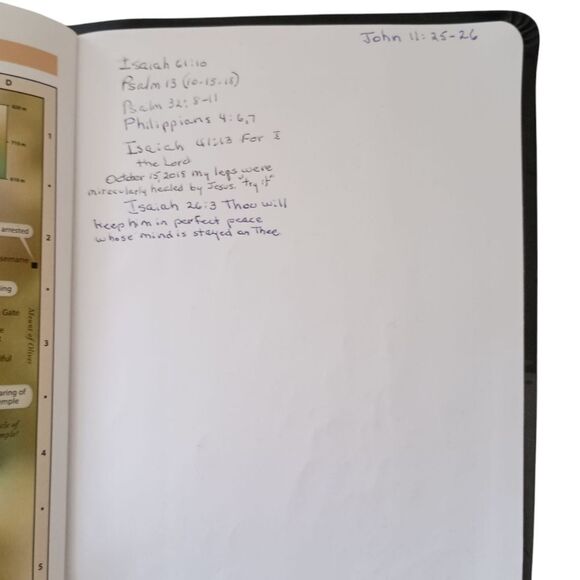 John 11:25-26
Isaiah 61:10
Psalm 13 (10-15-18)
Psalm 32:8-11
Philippians 4:6,7
Isaiah 41:13 For I
the Lord
October 15, 2018 my legs were
miraculously healed by Jesus. "try it"
Isaiah 26:3 Thou will
keep him in perfect peace
whose mind is stayed on Thee.
D
820 m
1
710 m
610 m
arrested
2
semane
ing
Gate
Mount of Olives
3
iful
aring of
emple
cle of
mple?
4
5